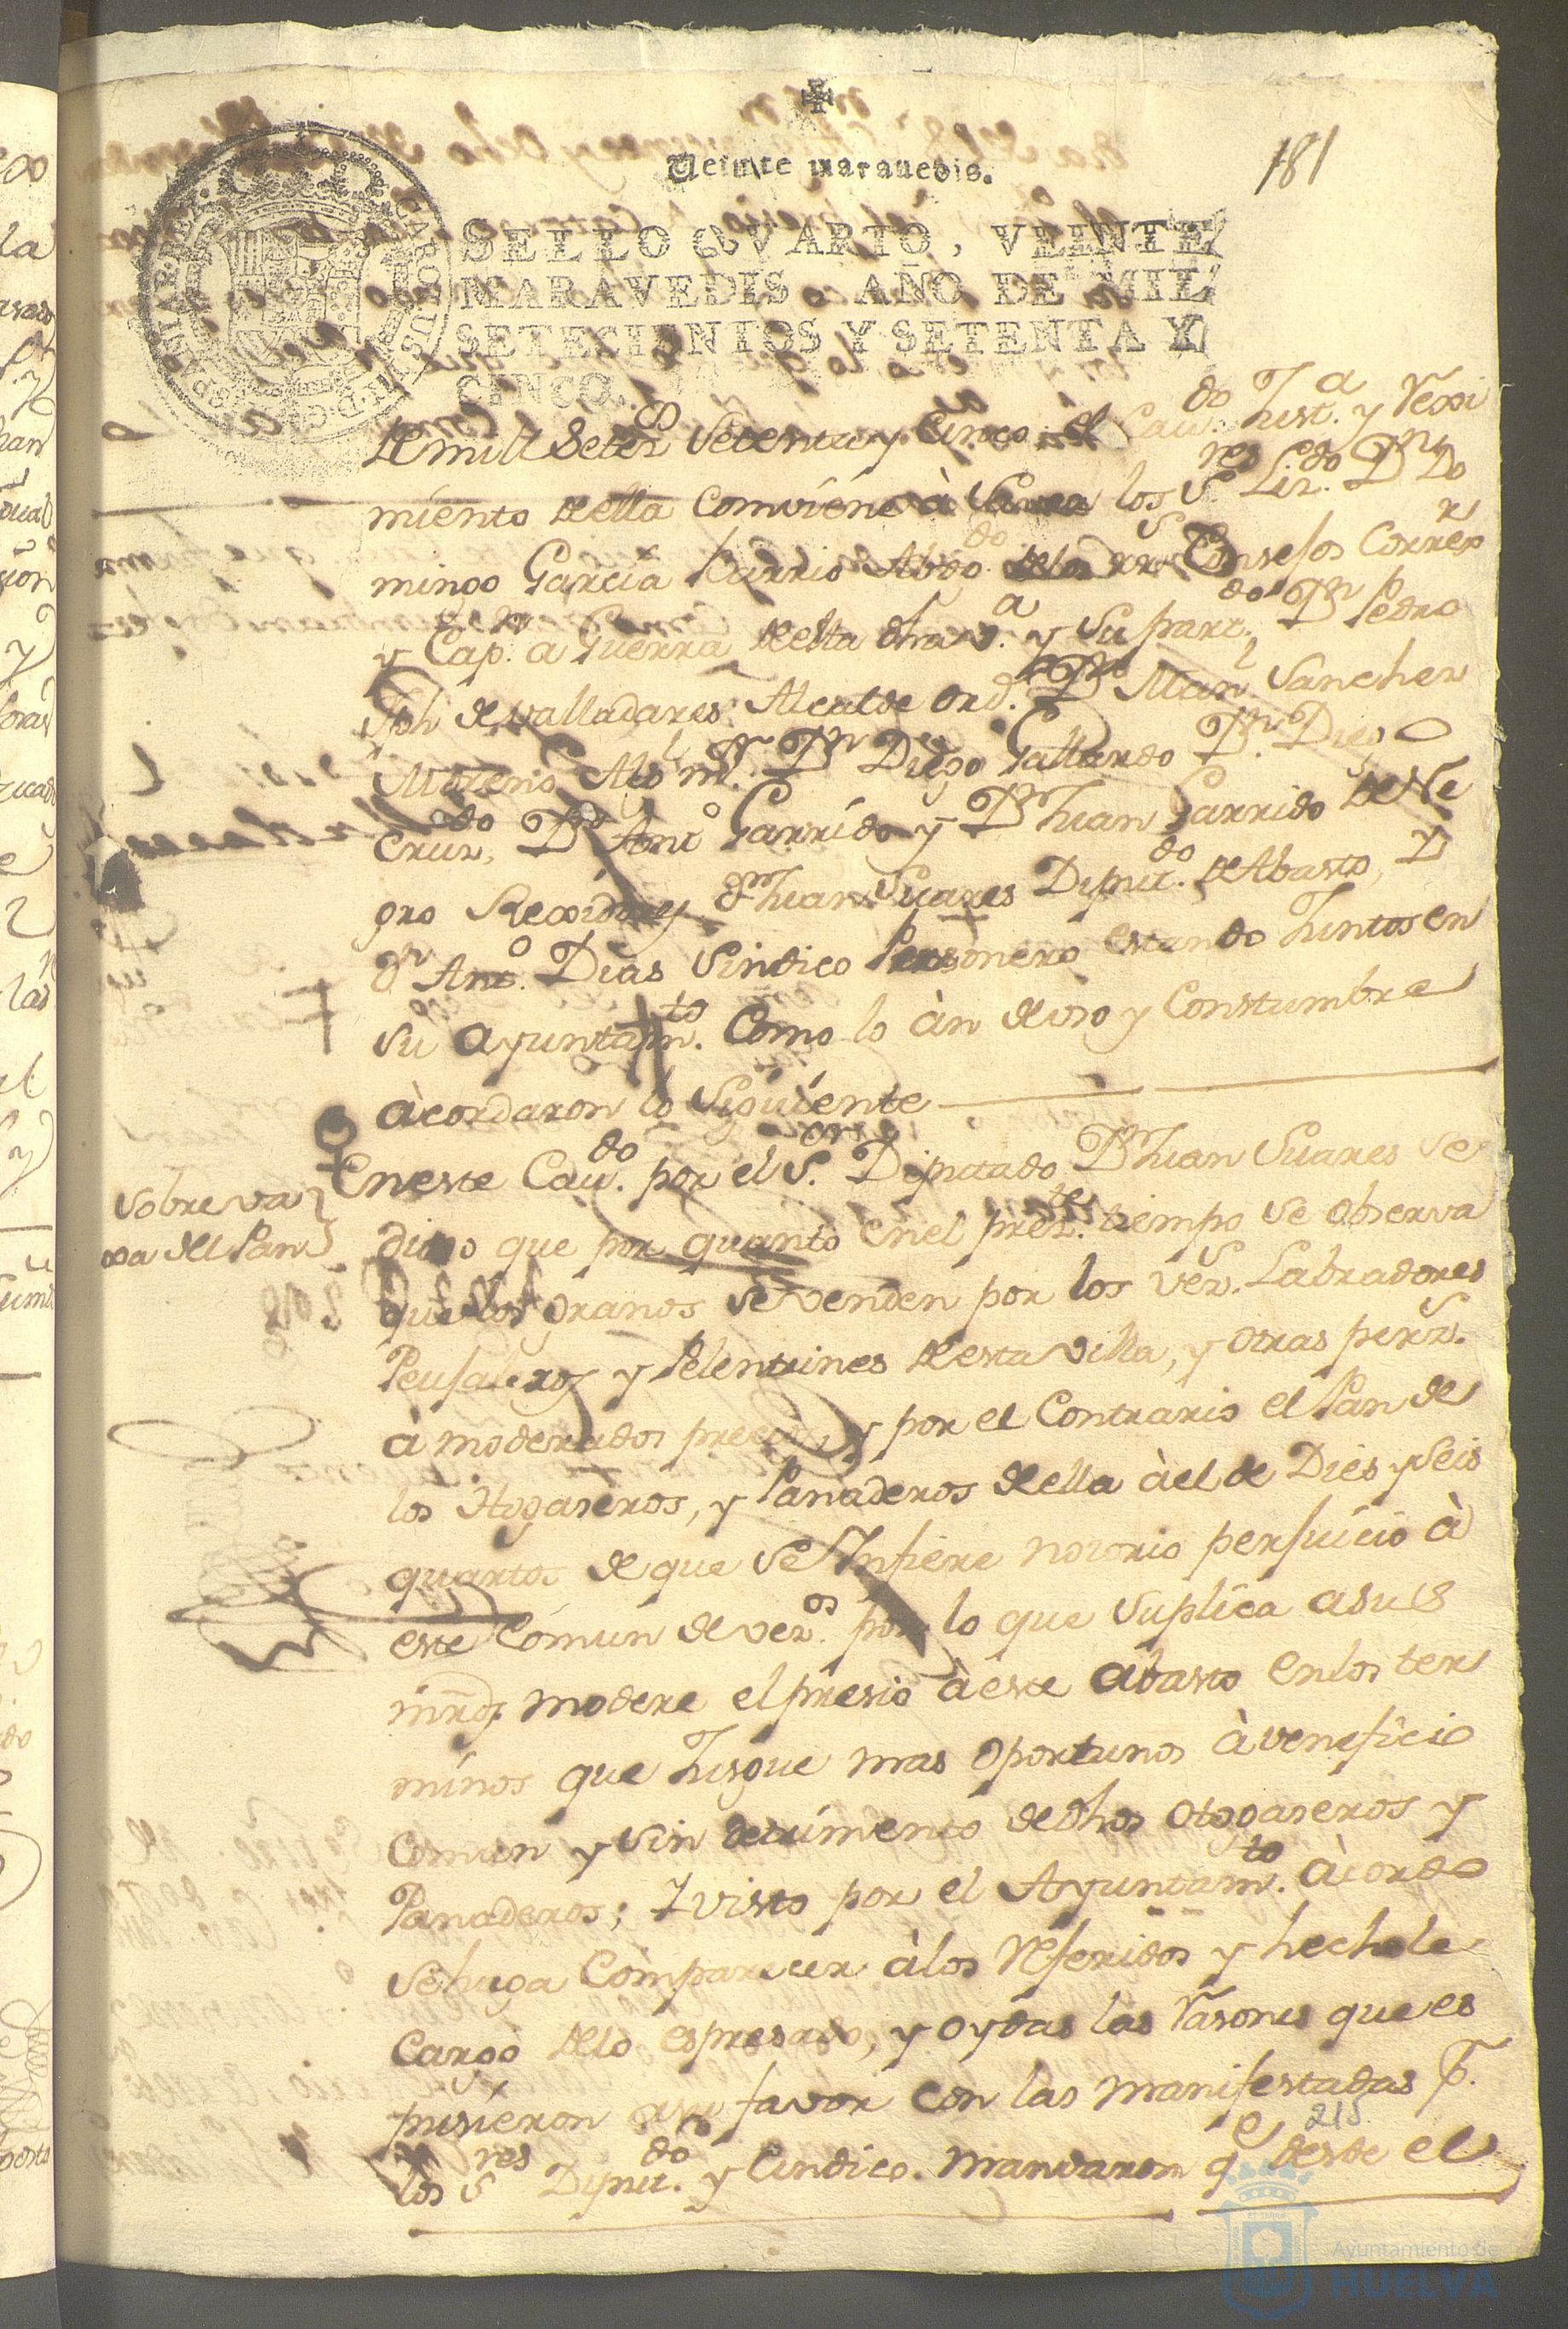 181
Veinte maravedis.
SELLO QVARTO, VEINTE
MARAVEDIS, AÑO DE MIL
SETECIENTOS Y SETENTA Y
CINCO.
de mill Setes. Setenta y Cinco el Cau.do Just.a y Rexi
miento della Combiene à Saver los S.res Liz.do Dn Do
mingo García Barrio Abdo. de los Rs Consejos Correx.r
y Cap.n a Guerra desta dha v.a y su part.do Dn Pedro
Jph de valladares Alcalde Ord. Dn Man.l Sanchez
Moreno Alg.l m.r Dn Diego Gallardo Dn Diego
Cruz, Dn Ant.o Garrido y Dn Juan Garrido de Ne
gro Rexidores Dn Juan Suares Diput.do de Abasto, y
Dn Ant.o Dias Sindico Personero estando Juntos en
su ayuntam.to Como lo àn de uso y Constumbre
àcordaron lo Siguiente
Sobre va
xa del Pan
En este Cau.do por el S.or Diputado Dn Juan Suares se
dixo que por quanto en el prez.te tiempo se observa
que los granos se venden por los vez.s Labradores
Peujaleros y Pelentrines desta villa, y otras perz.s
à moderados precios, y por el Contrario el Pan de
los Htogaseros, y Panaderos della àel de Dies y Seis
quartos de que se Infiere notorio perjuicio à
este Comun de vez.os por lo que Suplica a su S
mrd modere el presio àeste abasto en los ter
minos que Jusgue mas oportunos àveneficio
Comun y sin detrimento de dhos otogaseros y
Panaderos; Y visto por el Ayuntam.to àcordo
Se haga Comparecer àlos Referidos y hechole
Cargo delo espresado, y oydas las Rasones que es
pusieron asu favor con las manifestadas p.r
los S.res Diput.do y Sindico. mandaron q.e desde el
215
Ayuntamiento de
HUELVA